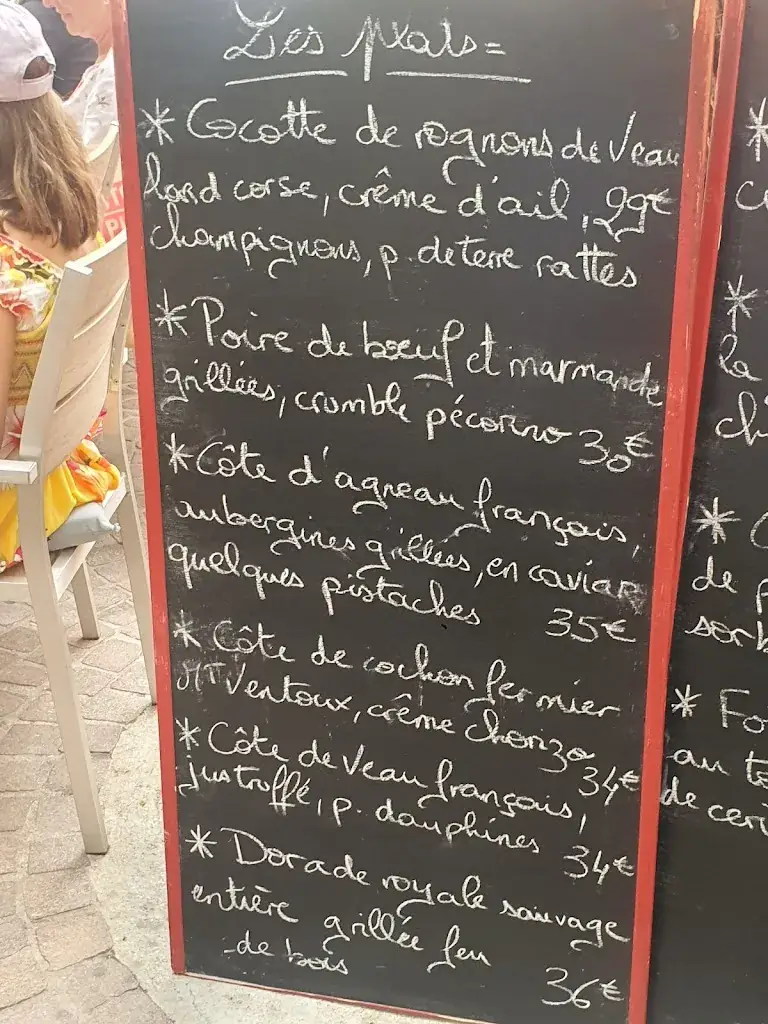 Les plats =
* Cocotte de rognons de Veau
lard corse, crême d'ail, 29€
champignons, p. de terre rattes
* Poire de bœuf et marmande
grillées, crumble pécorino 30€
* Côte d'agneau français,
aubergines grillées, en caviar
quelques pistaches 35€
* Côte de cochon fermier
Mt Ventoux, crême chorizo
34€
* Côte de Veau français,
jus truffé, p. dauphines
34€
* Dorade royale sauvage
entière grillée feu
de bois 36€
*
*
la
*
de
sorb
* Fo
au
de ceri